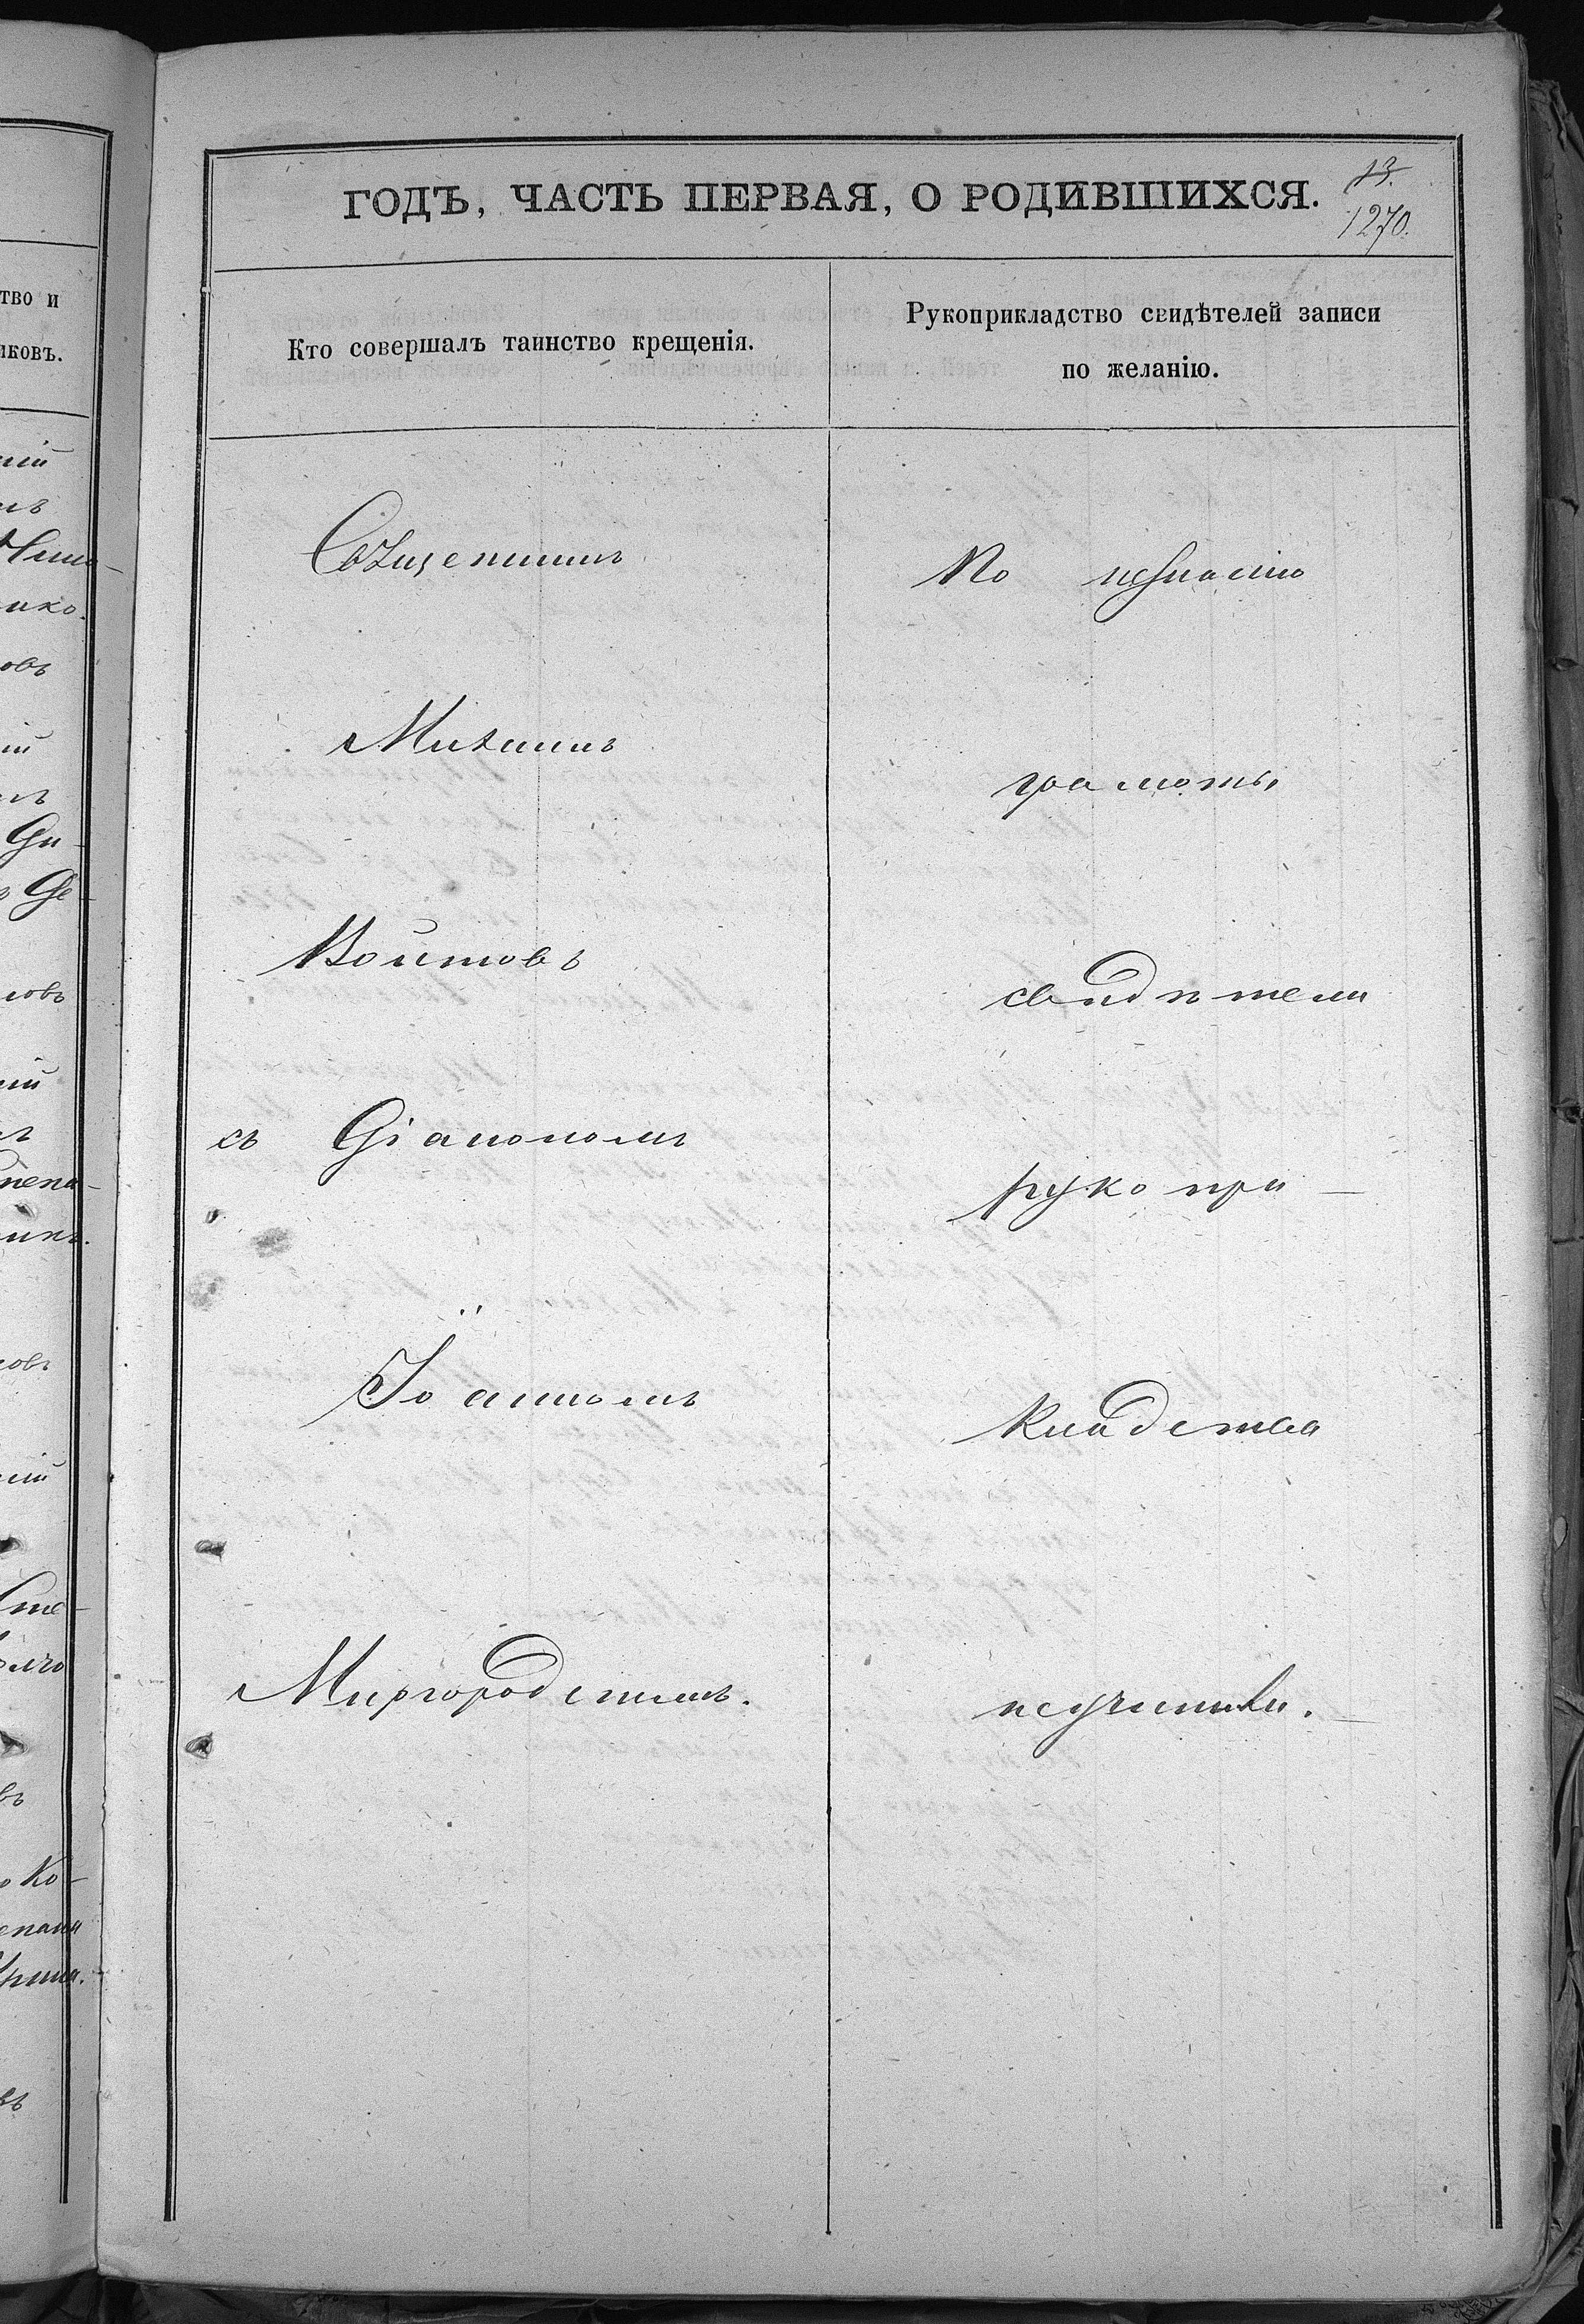 ГОДЪ, ЧАСТЬ ПЕРВАЯ, О РОДИВШИХСЯ.
13.
1270.
тво и
иковъ.
Кто совершалъ таинство крещенія.
Рукоприкладство свидѣтелей записи
по желанію.
Священникъ
Михаилъ
Войтовъ
съ Діакономъ
Іоанномъ
Миргородскимъ.
По незнанію
грамоты
свидѣтели
рукопри—
кладства
неучинили.